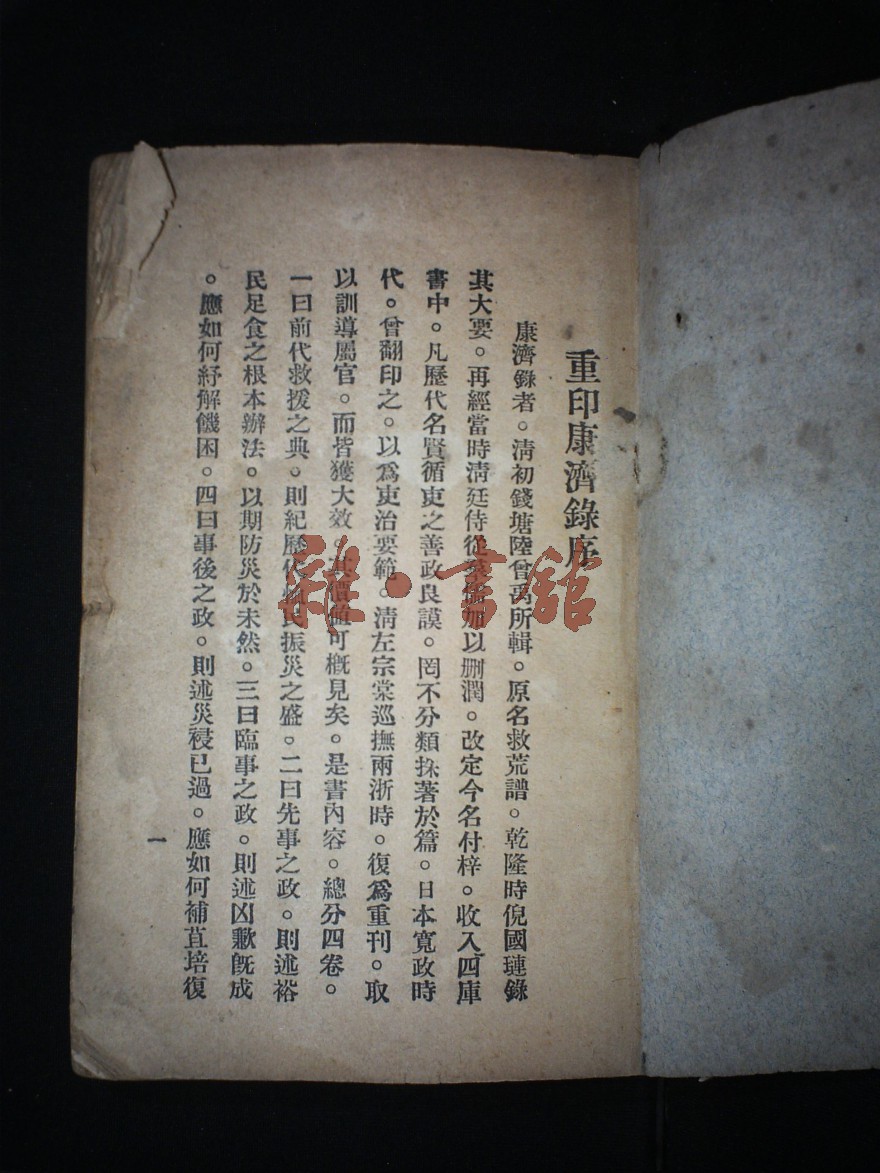 重印康濟錄序
康濟錄者。淸初錢塘陸曾禹所輯。原名救荒譜。乾隆時倪國璉錄
其大要。再經當時淸廷侍從加以删潤。改定今名付梓。收入四庫
書中。凡歷代名賢循吏之善政良謨。罔不分類採著於篇。日本寬政時
代。曾翻印之。以爲吏治要範。淸左宗棠巡撫兩浙時。復爲重刊。取
以訓導屬官。而皆獲大效。其價値可槪見矣。是書內容。總分四卷。
一曰前代救援之典。則紀歷代民振災之盛。二曰先事之政。則述裕
民足食之根本辦法。以期防災於未然。三曰臨事之政。則述凶歉旣成
。應如何紓解饑困。四曰事後之政。則述災祲已過。應如何補苴培復
一
雜·書館